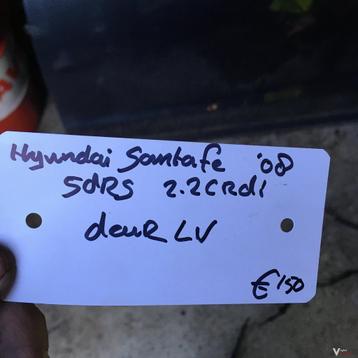 Hyundai Santafe '08
5dRS 2.2CRdi
deuR LV
€150